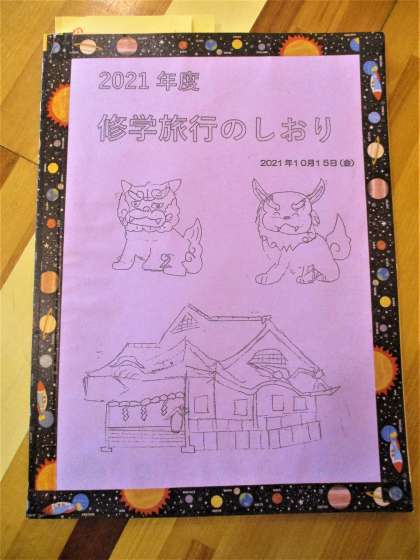 2021年度
修学旅行のしおり
2021年10月15日(金)
2